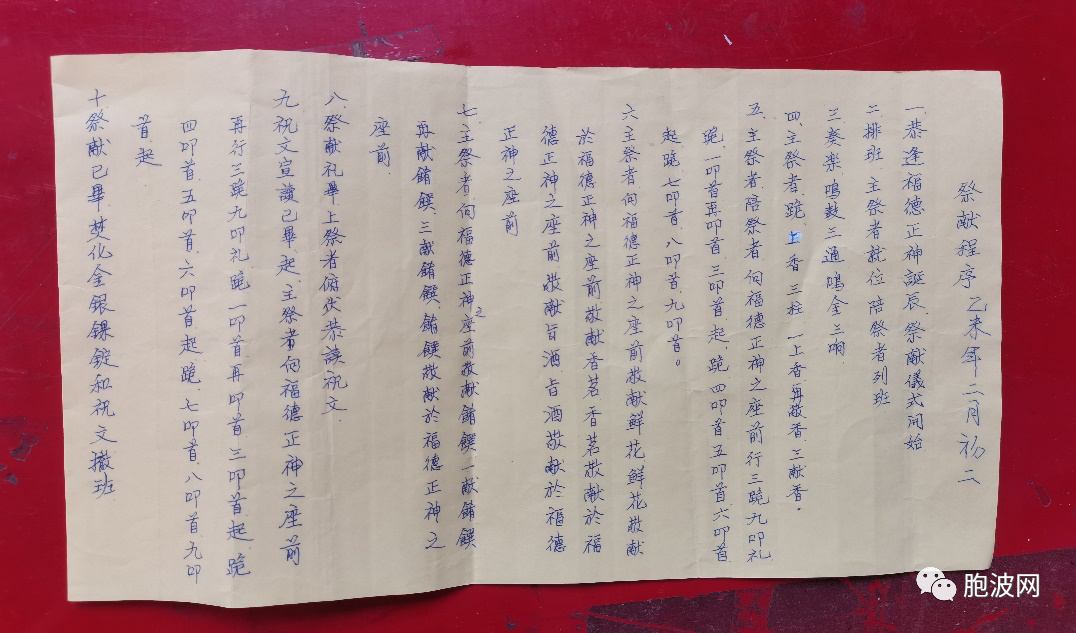 祭献程序 乙未年二月初二
一.恭逢福德正神誕辰.祭献儀式開始
二排班.主祭者就位.陪祭者列班
三奏樂.鳴鼓三通鳴金三响
四.主祭者.跪.上香.三柱.一上香.再敬香.三献香.
五.主祭者.陪祭者.向福德正神之座前行三跪九叩礼
跪.一叩首再叩首.三叩首.起.跪.四叩首.五叩首六叩首
起跪七叩首.八叩首.九叩首。
六主祭者向福德正神之座前敬献鮮花鮮花敬献
於福德正神之座前敬献香茗香茗敬献於福
德正神之座前敬献旨酒旨酒敬献於福德
正神之座前
七.主祭者.向福德正神之座前敬献餚饌一献餚饌
再献餚饌.三献餚饌.餚饌敬献於福德正神之
座前.
八.祭献礼畢.上祭者俯伏恭讀祝文.
九.祝文宣讀已畢.起.主祭者向福德正神之座前
再行三跪九叩礼跪一叩首再叩首.三叩首起跪
四叩首.五叩首.六叩首起跪.七叩首.八叩首九叩
首.起
十.祭献已畢.焚化金銀錁錠和祝文.撤班
胞波网